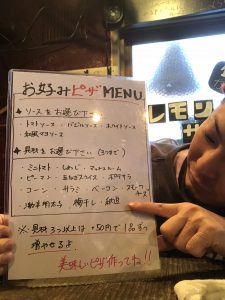 お好みピザMENU
◆ソースをお選び下さい
・トマトソース ・バジルソース ・ホワイトソース
・和風マヨソース
◆具材をお選び下さい(3つまで)
・ミニトマト ・しめじ ・マッシュルーム
・ピーマン ・玉ねぎスライス ・ポテサラ
・コーン ・サラミ ・ベーコン ・スモークチーズ
・明太子 ・梅干し ・納豆
※具材3つ以上は+50円で1品ずつ
増やせるよ
美味しいピザ作ってね!!
レモン
サ